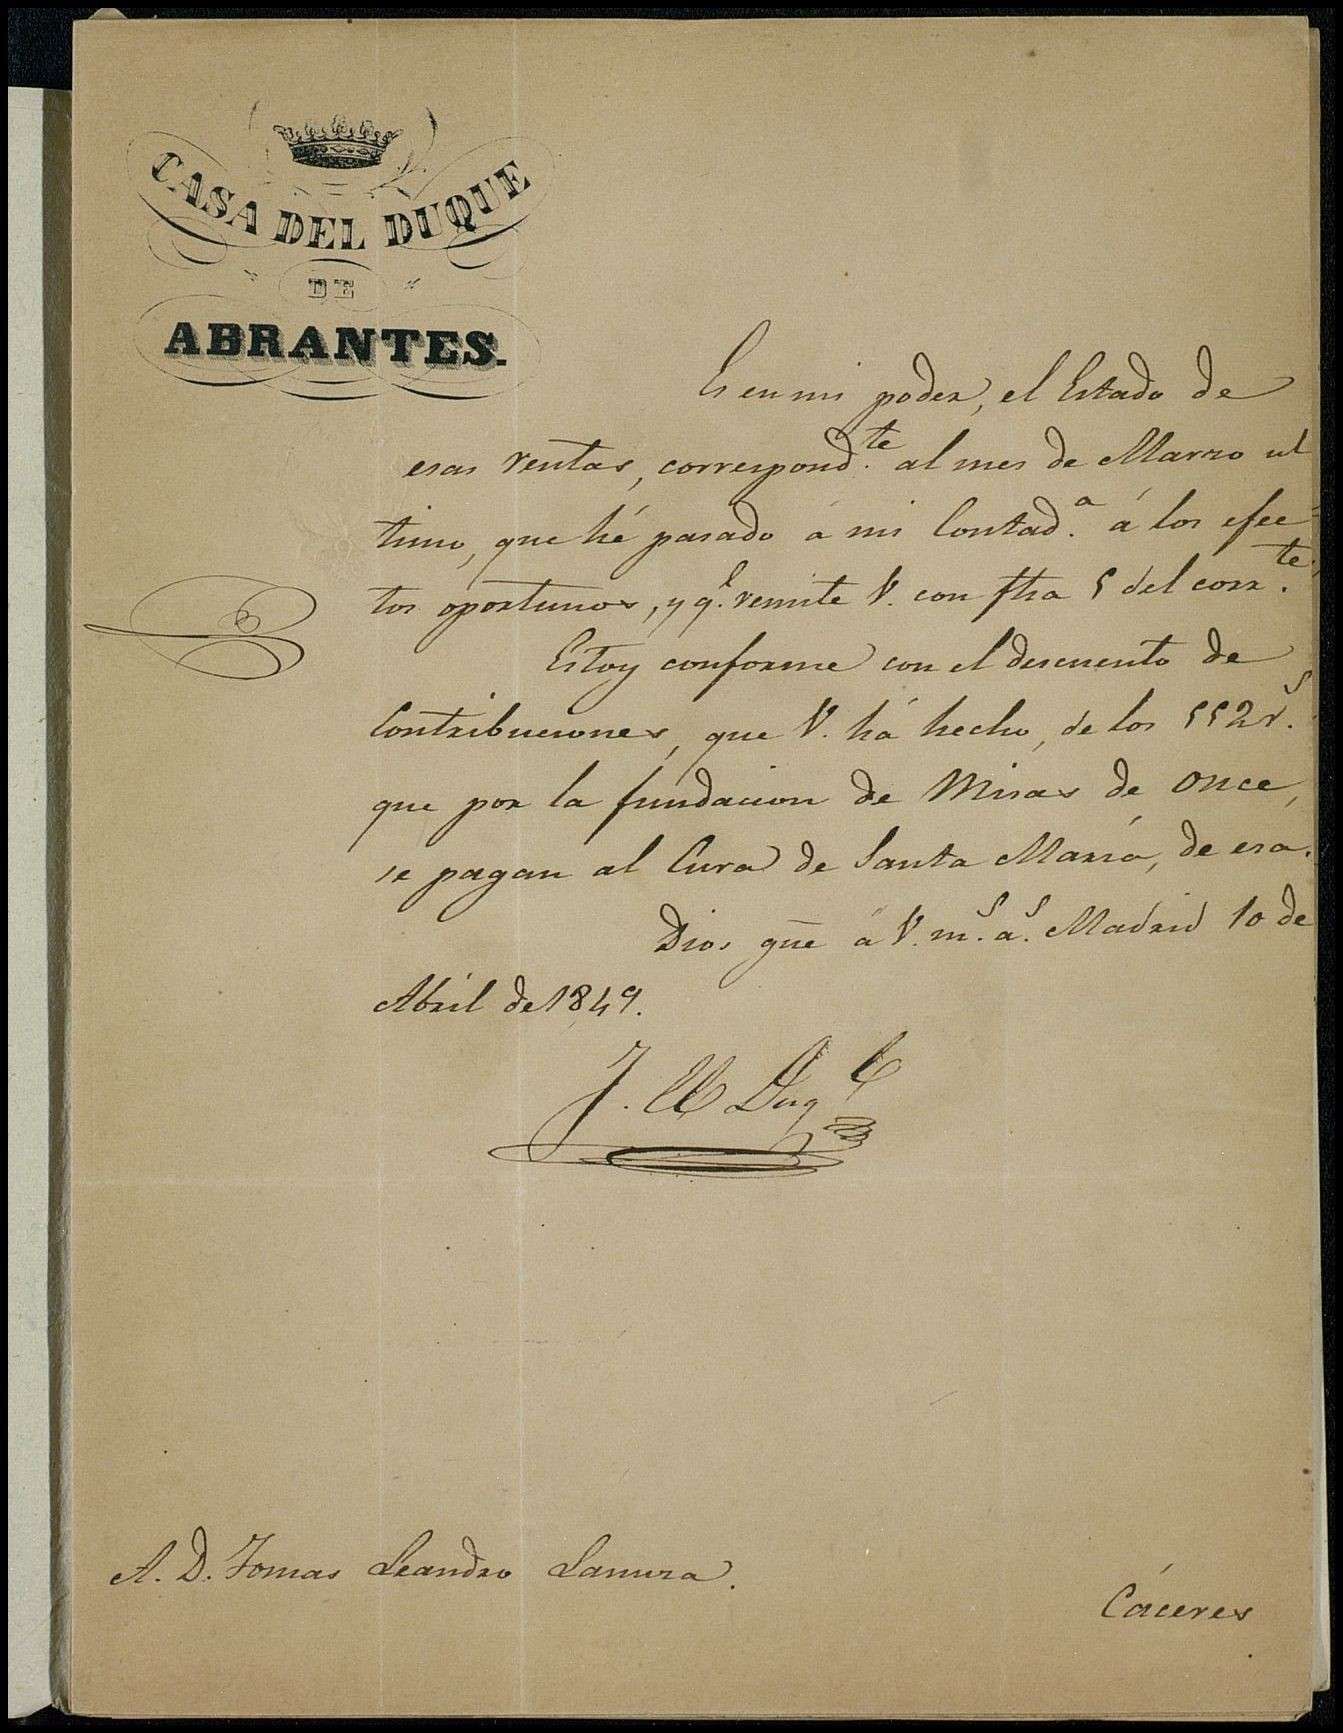 CASA DEL DUQUE
DE
ABRANTES.
Es en mi poder, el Estado de
esas rentas, correspond.te al mes de Marzo ul
timo, que hé pasado á mi Contad.a á los efec-
tos oportunos, y q.e remite V. con fha 5 del corr.te
Estoy conforme con el descuento de
Contribuciones, que V. há hecho, de los 552 r.s
que por la fundacion de Misas de once,
se pagan al Cura de Santa María, de esa.
Dios gue á V. m.s a.s Madrid 10 de
Abril de 1849.
J. El Duq.e
A. D. Tomas Leandro
Cáceres